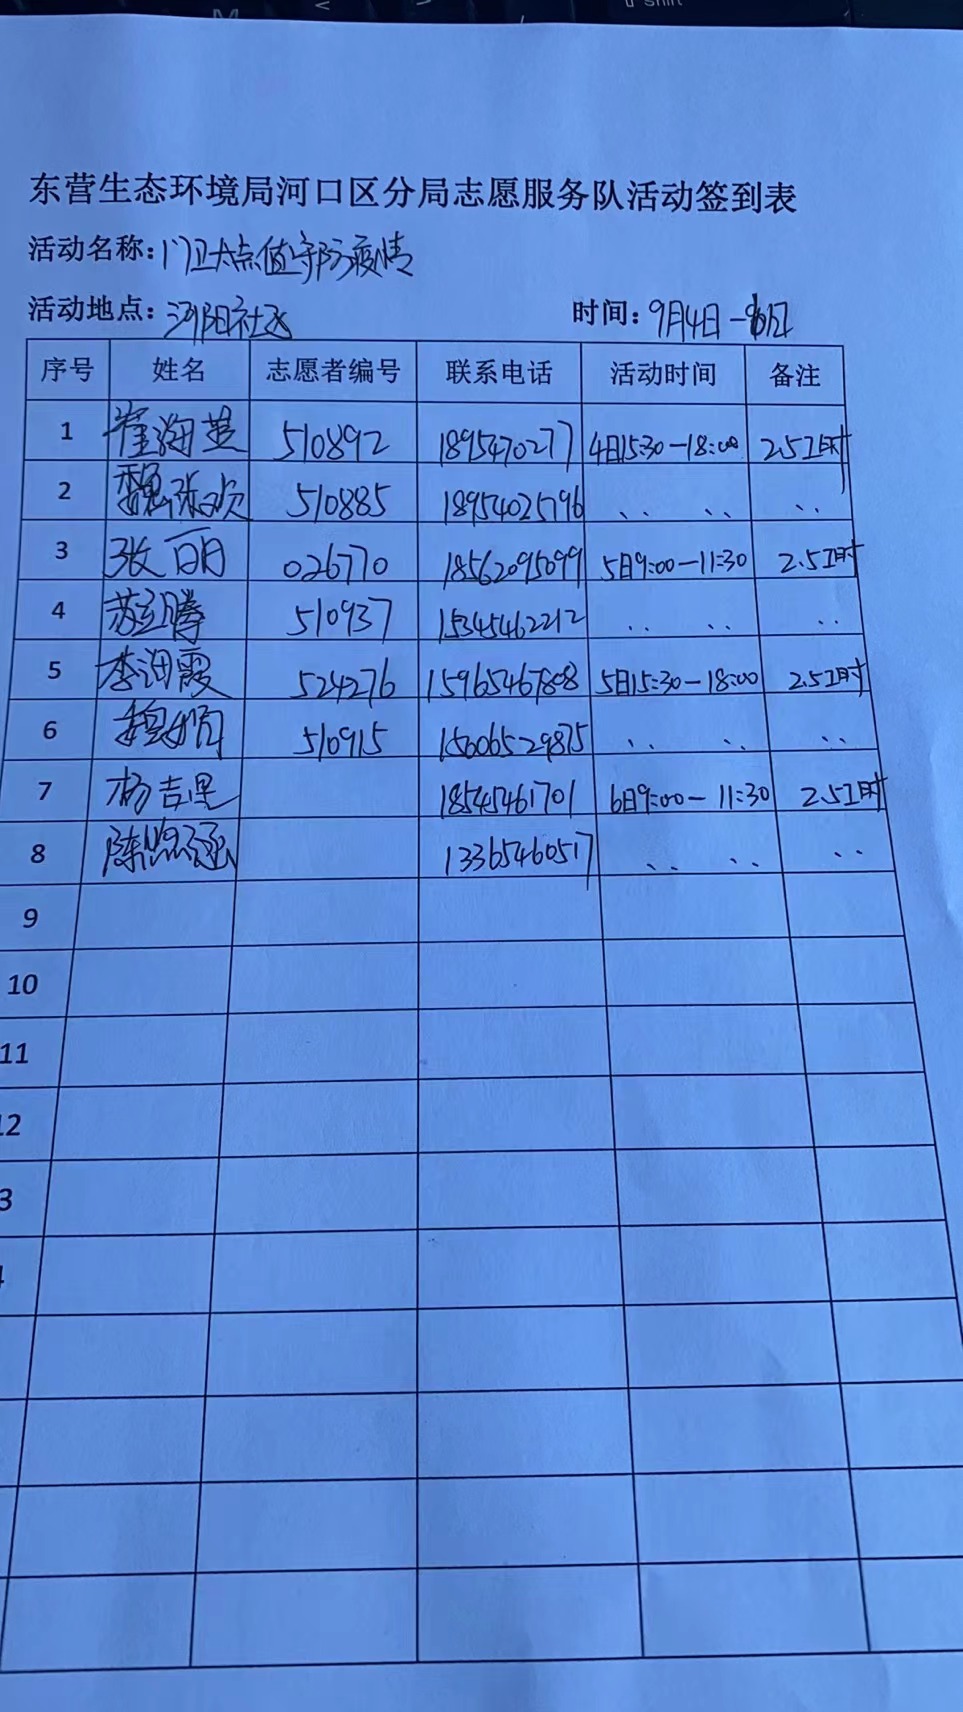 东营生态环境局河口区分局志愿服务队活动签到表
活动名称: 门卫 点值守防疫情
活动地点: 河阳社区 时间: 9月4日-6日
序号 姓名 志愿者编号 联系电话 活动时间 备注
1 崔海英 510892 1895470277 4日15:30-18:00 2.5工时
2 魏张欢 510885 18954025796 、、 、、 、、
3 张丽 026770 18562095099 5日9:00-11:30 2.5工时
4 苏 腾 510937 15345462212 、、 、、 、、
5 李海霞 524276 15965467808 5日15:30-18:00 2.5工时
6 魏娟 510915 15606529875 、、 、、 、、
7 杨吉里 18545461701 6日9:00-11:30 2.5工时
8 陈 涵 13365460517 、、 、、 、、
9
10
11
12
3